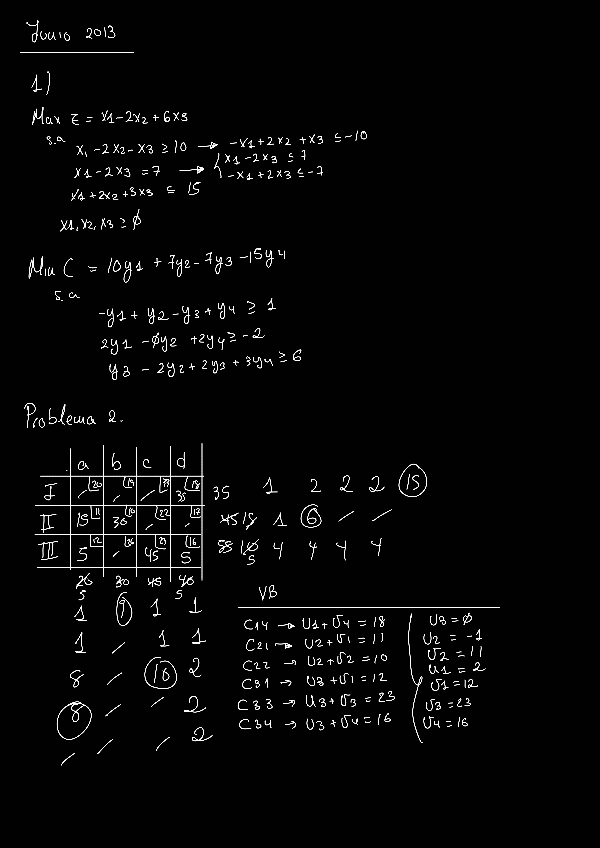 Junio 2013
1)
Max Z = x1-2x2+6x3
s.a
x1-2x2-x3 ≥ 10 → -x1+2x2+x3 ≤ -10
x1-2x3 = 7 → x1-2x3 ≤ 7
-x1+2x3 ≤ -7
x1+2x2+3x3 ≤ 15
x1,x2,x3 ≥ ∅
Min C = 10y1 + 7y2-7y3-15y4
s.a
-y1+y2-y3+y4 ≥ 1
2y1 -∅y2 +2y4 ≥ -2
y3 - 2y2+2y3+3y4 ≥ 6
Problema 2.
a b c d
I 35 18 35 1 2 2 2 15
II 15 11 30 10 22 45 15 1 6 / /
III 5 12 45 23 5 16 4 4 4 4
30 45
5 5
1 9 1 1
1 / 1 1
8 / 10 2
8 / / 2
/ / / 2
VB
C14 → U1+V4 = 18
C21 → U2+V1 = 11
C22 → U2+V2 = 10
C31 → U3+V1 = 12
C33 → U3+V3 = 23
C34 → U3+V4 = 16
U3=∅
U2 = -1
V2 = 11
U1 = 2
V1=12
V3=23
V4=16